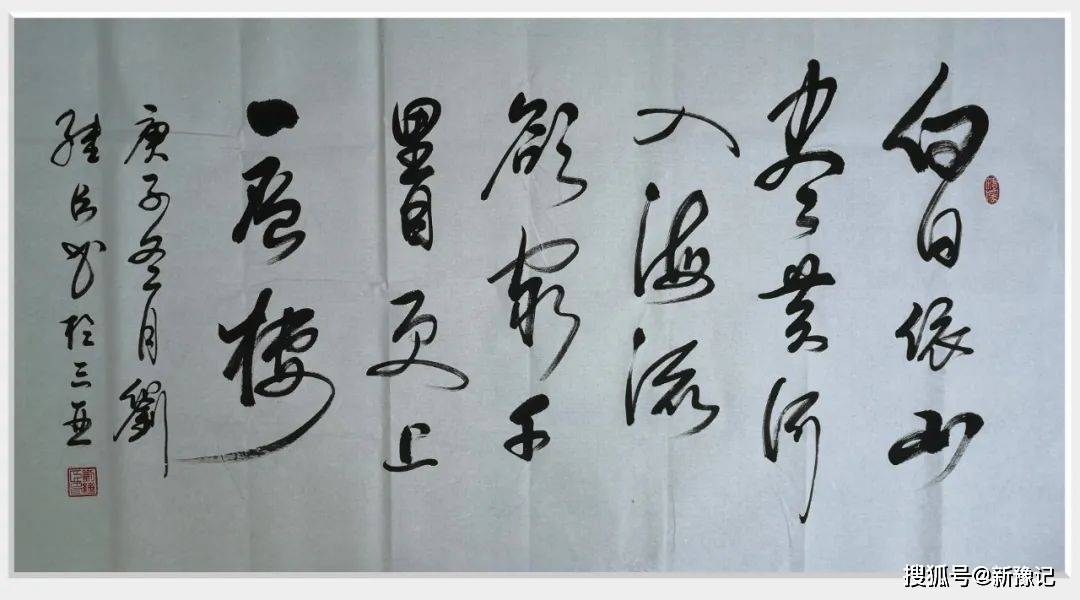 白日依山
尽黄河
入海流
欲穷千
里目更上
一层楼
庚子冬月劉
书於三亚
搜狐号@新豫记